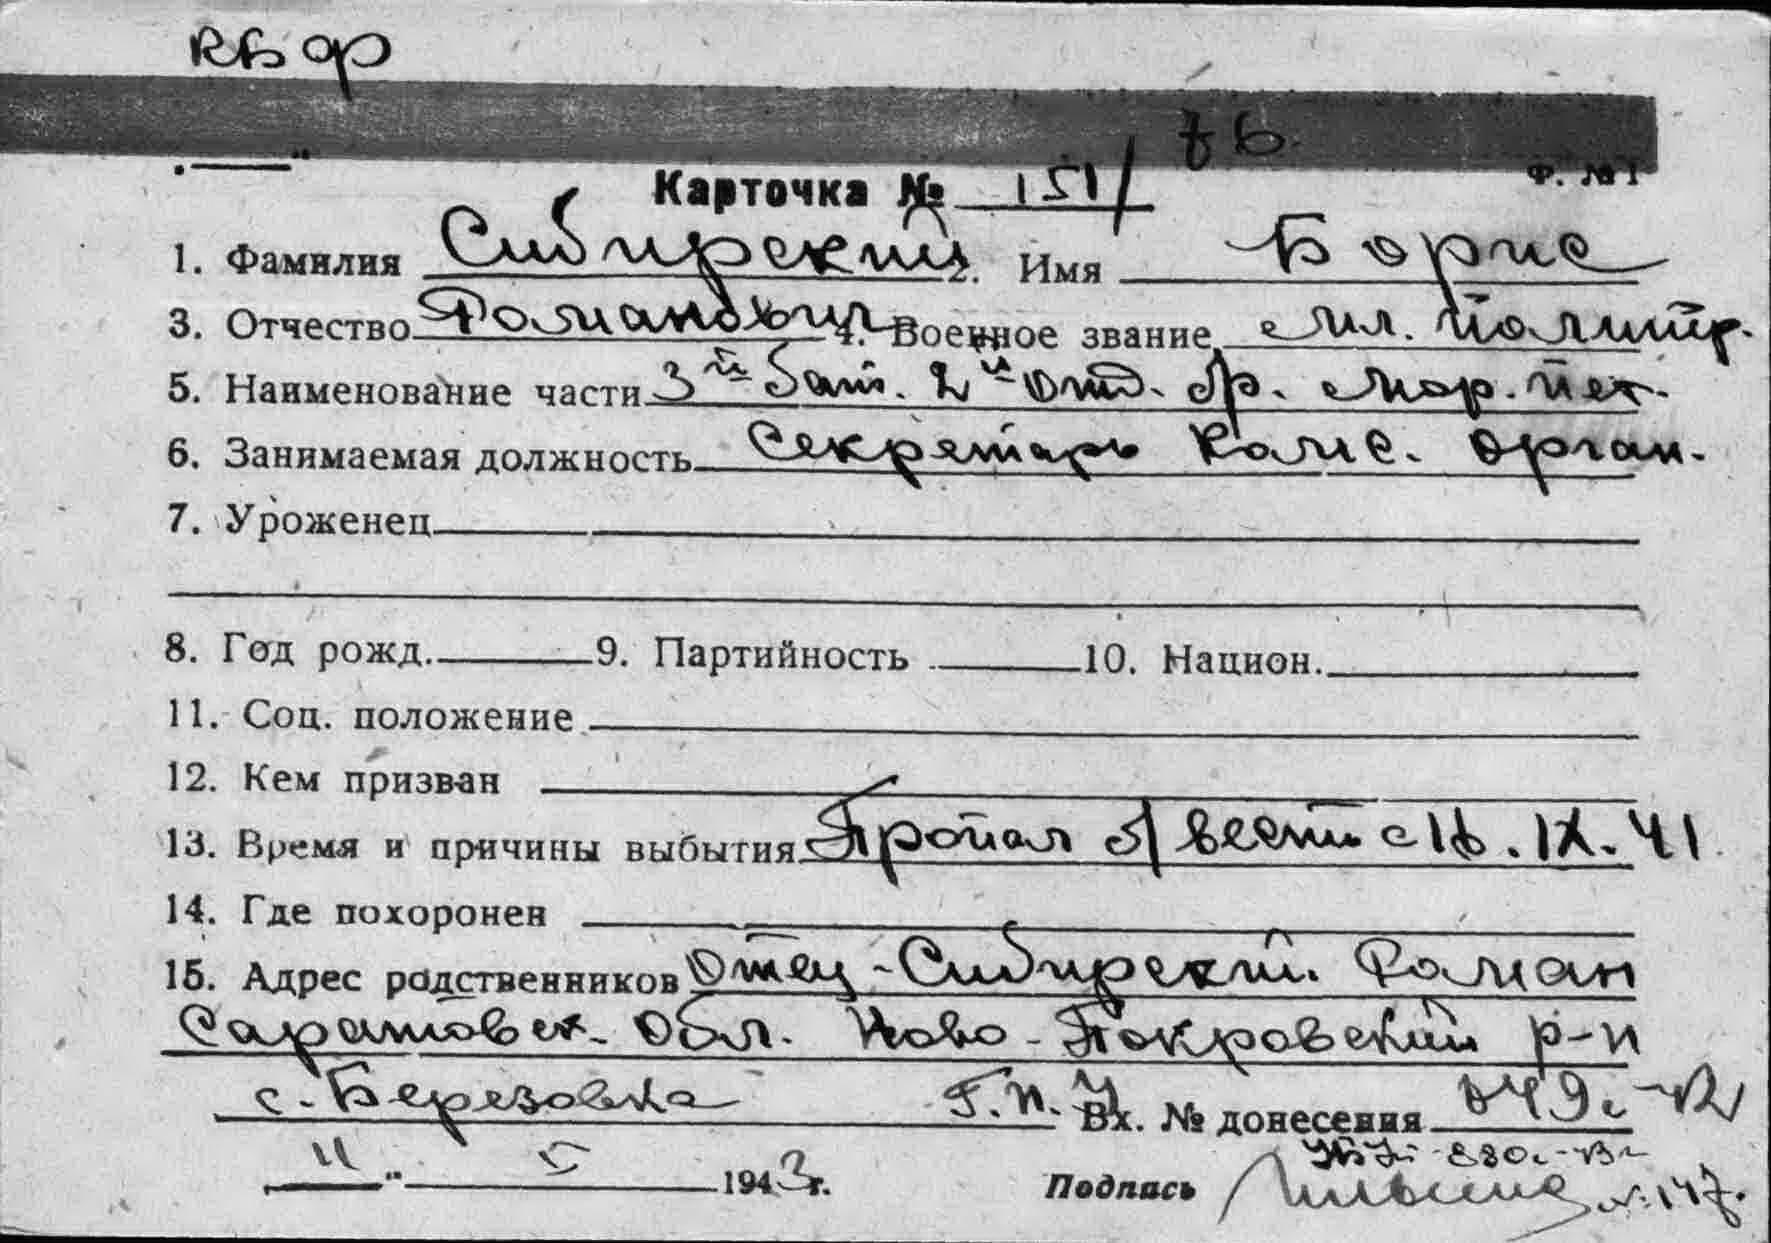 КБФ
76.
„ “ Ф. №1
Карточка № 151/
1. Фамилия Сибирский 2. Имя Борис
3. Отчество Романович 4. Военное звание мл. политр.
5. Наименование части 3й бат. 2й отд. бр. мор. пех.
6. Занимаемая должность Секретарь Комс. орган.
7. Уроженец
8. Год рожд. 9. Партийность 10. Национ.
11. Соц. положение
12. Кем призван
13. Время и причины выбытия Пропал б/вести с 16.IX.41
14. Где похоронен
15. Адрес родственников Отец - Сибирский Роман
Саратовск. обл. Ново-Покровский р-н
с. Березовка Г.П.У Вх. № донесения 049с
„11“ V 1943г. Подпись